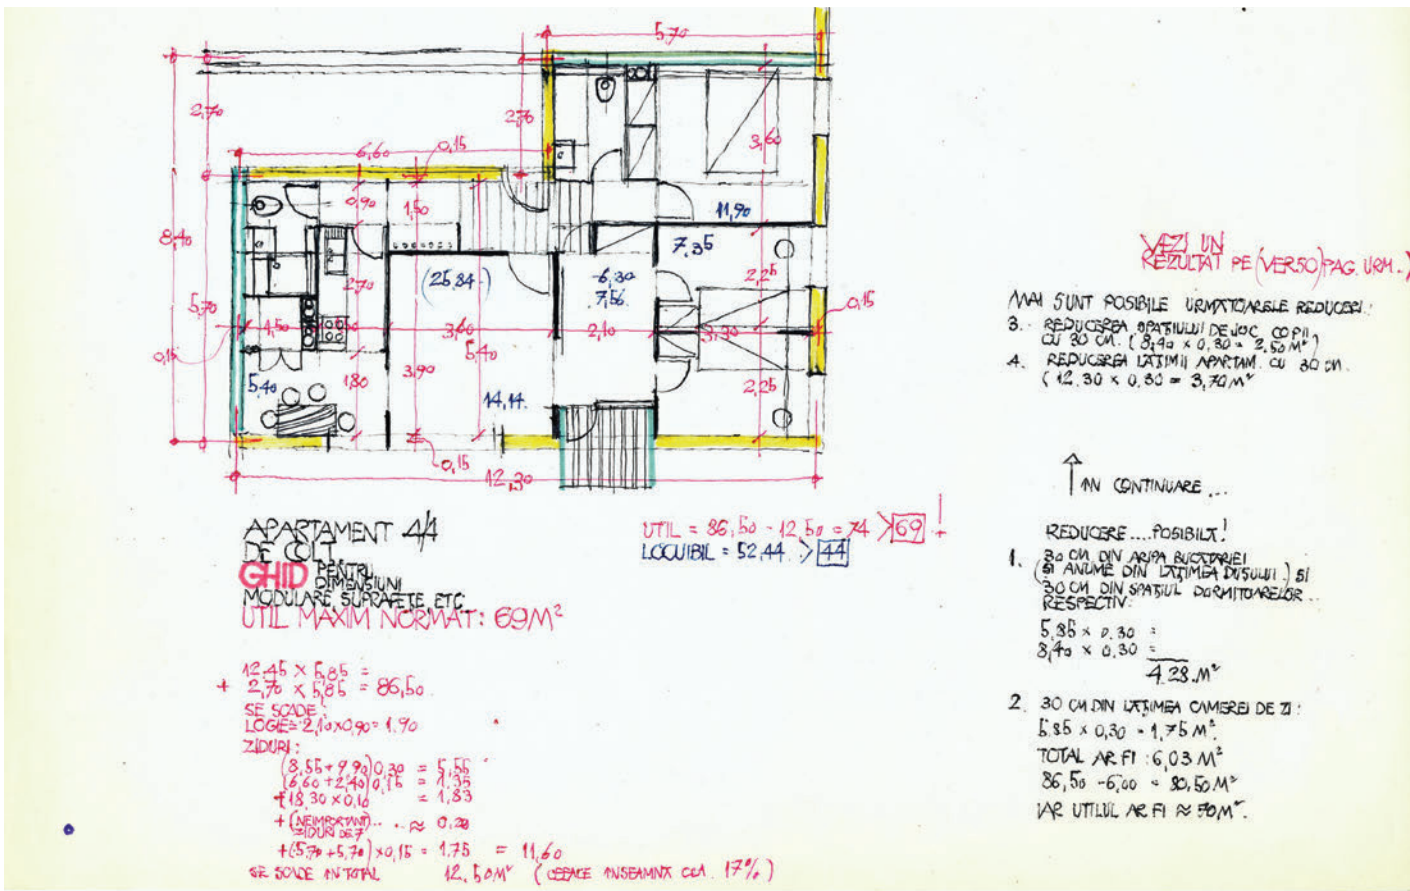 5,70
2,70
2,70
6,60
0,15
3,60
0,90
1,50
11,90
8,40
7,35
(25,84)
6,30
7,56
2,25
2,70
5,70
0,15
1,50
3,60
2,10
3,30
0,15
5,40
3,90
1,80
5,40
14,14
2,25
0,15
12,30
APARTAMENT 4/4
DE COLȚ
GHID PENTRU
DIMENSIUNI
MODULARE, SUPRAFEȚE, ETC.
UTIL MAXIM NORMAT: 69M²
UTIL = 86,50 - 12,50 = 74 > 69 !
LOCUIBIL = 52,44 > 44
12,45 × 5,85 =
+ 2,70 × 5,85 = 86,50
SE SCADE:
LOGIE = 2,10×0,90 = 1.90
ZIDURI:
(8,55+9,90)0,30 = 5,55
(6,60+2,40)0,15 = 1.35
+18,30×0,10 = 1,83
+ (NEIMPORTANT)... ≈ 0,20
ZIDURI DE 7
+(5,70+5,70)×0,15 = 1.75 = 11,60
SE SCADE IN TOTAL 12,50M² (CEEACE ÎNSEAMNĂ CCA. 17%)
VEZI UN
REZULTAT PE (VERSO) PAG. URM..)
MAI SUNT POSIBILE URMĂTOARELE REDUCERI:
3. REDUCEREA SPAȚIULUI DE JOC COPII,
CU 30 CM. (8,40 × 0,30 = 2,50 M²)
4. REDUCEREA LĂȚIMII APARTAM. CU 30 CM.
(12.30 × 0.30 = 3,70M²
ÎN CONTINUARE...
REDUCERE....POSIBILĂ!
1. 30 CM DIN ARIPA BUCĂTĂRIEI
(ȘI ANUME DIN LĂȚIMEA DUȘULUI) ȘI
30 CM DIN SPAȚIUL DORMITOARELOR...
RESPECTIV:
5,85 × 0.30 =
8,40 × 0.30 =
4.28.M²
2. 30 CM DIN LĂȚIMEA CAMEREI DE ZI:
5.85 × 0,30 = 1,75 M².
TOTAL AR FI: 6,03 M²
86,50 - 6,00 = 80,50M²
IAR UTILUL AR FI ≈ 70M².